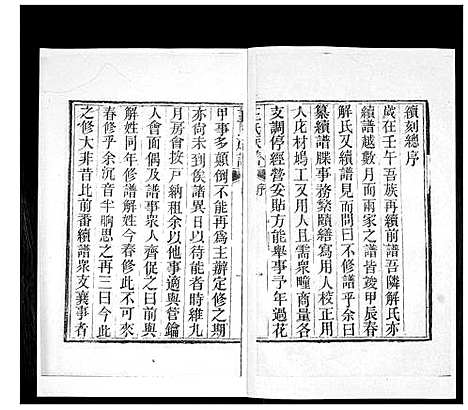 續刻總序
歲在壬午吾族再續前譜吾隣解氏亦
續譜越數月而兩家之譜皆竣甲辰春
解氏又續譜見而問曰不修譜乎余曰
纂續譜牒事務繁賾繕寫用人校正用
人庀材塢工又且需人且需衆疃商量
支調停經營妥貼方能舉事予年過花
甲事多顛倒不能再爲主辦定修之期
亦尚未到俟諸異日以待能者時維九
月房會按戶納租余以他事適與管鑰
人會面偶及譜事衆人齊促之曰前與
解姓同年修譜解姓今春修此不可來
春修乎余思之再三曰今此
之修大非昔比前番續譜衆支襄事者